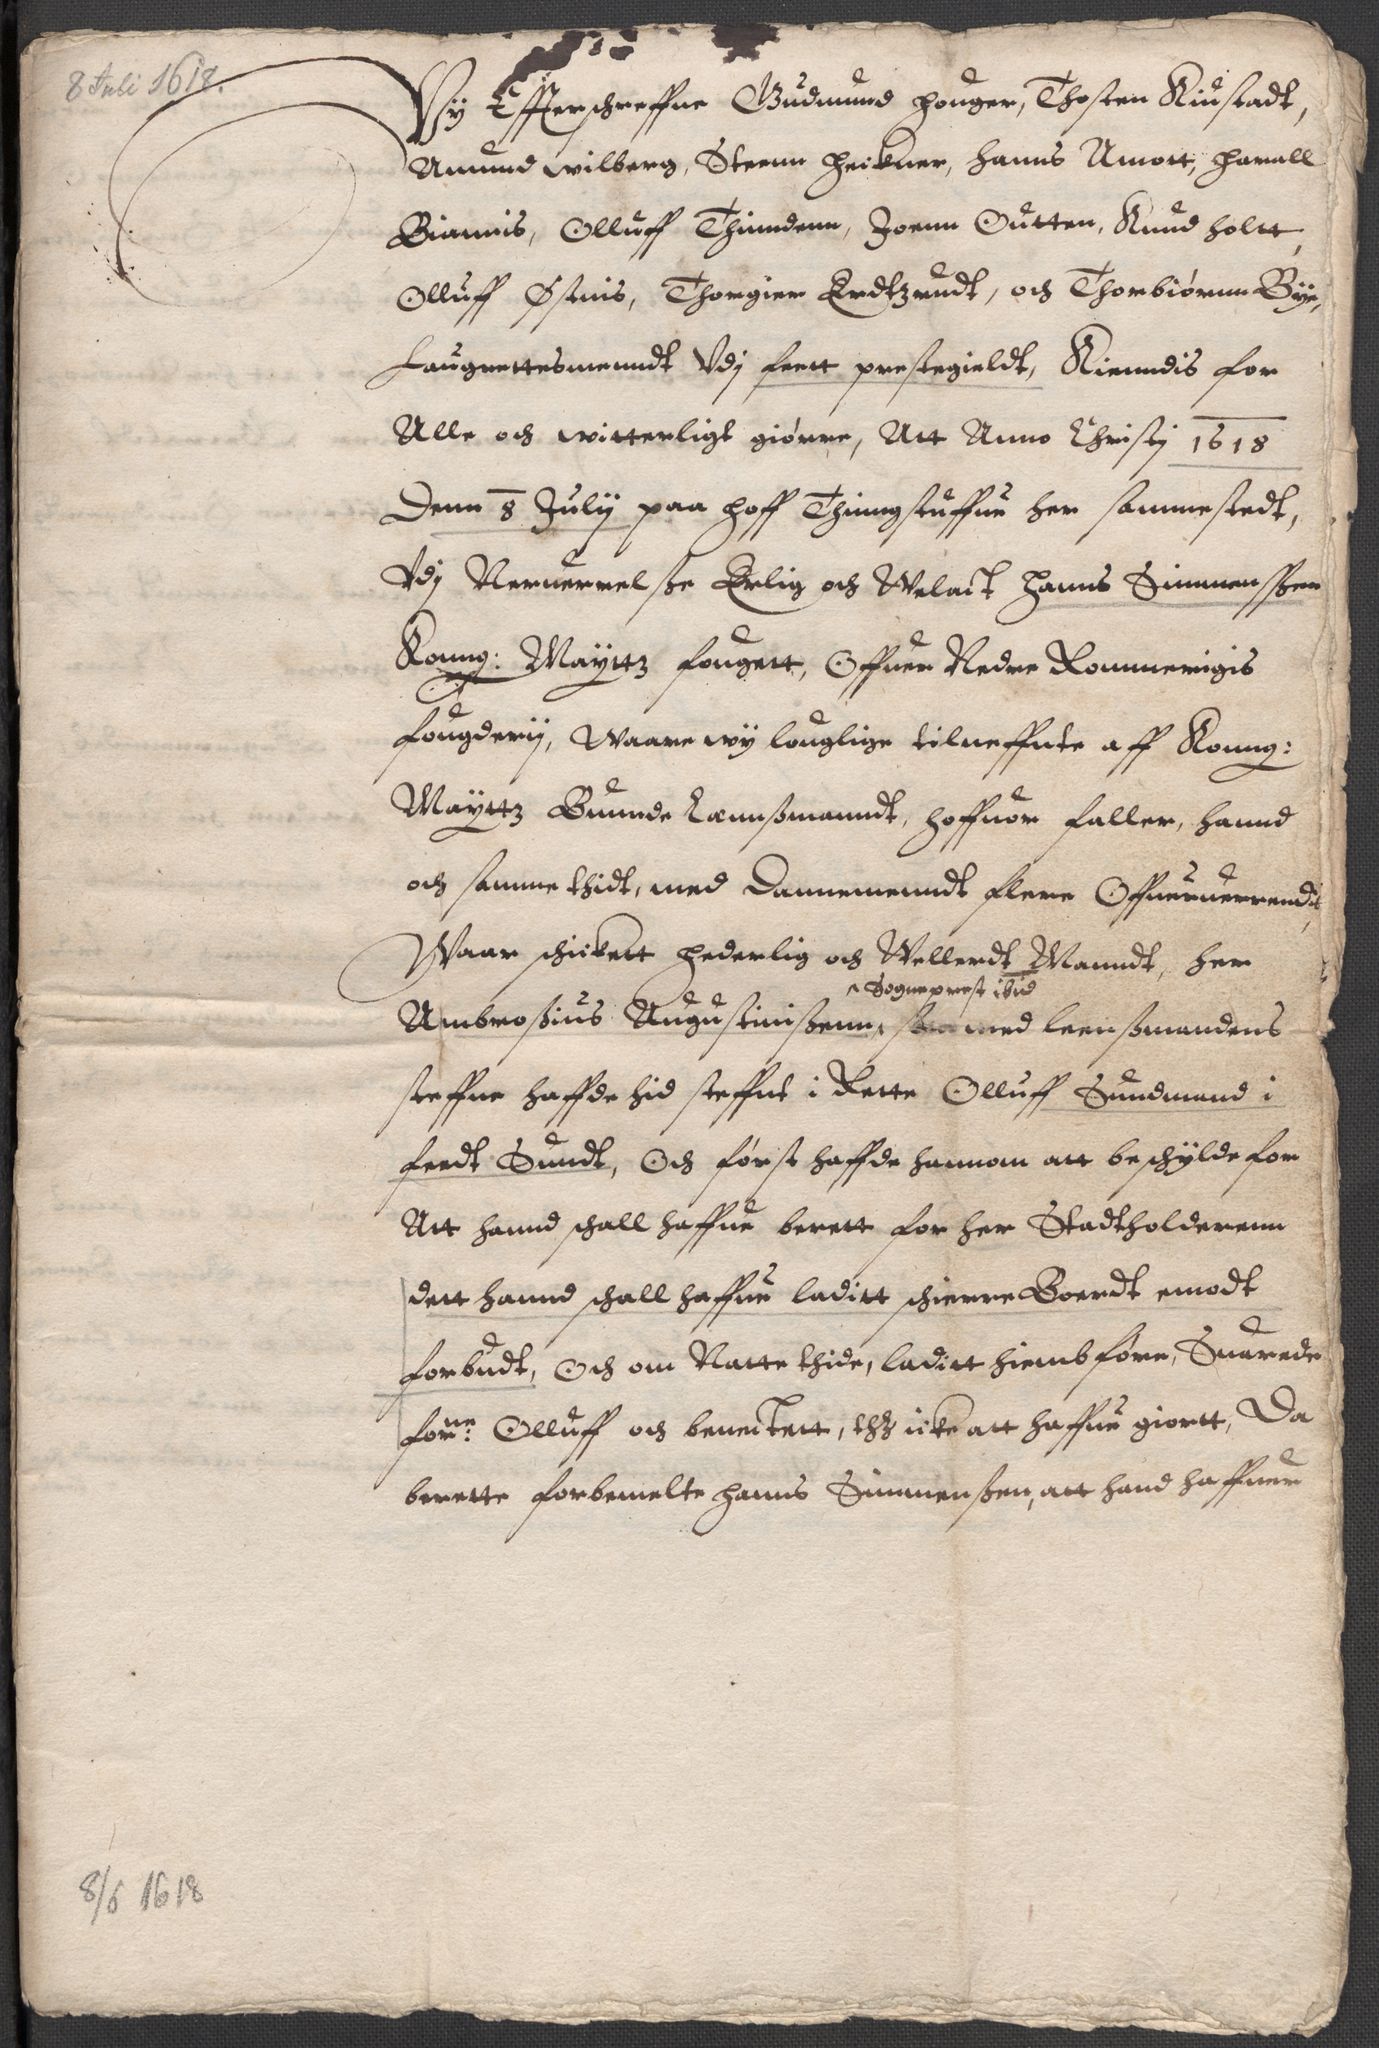 8 Juli 1618.
Wy Effterschreffne Gudmund Houger, Thosten Kiustadt,
Amund Wilberg, Steenn Heikner, Hanns Amott, Harall
Biannis, Olluff Thunndenn, Joenn Outten, Knud Holtt,
Olluff Østnis, Thorgier Erdtzrudt, och Thorbiørnn Bye,
Laugrettesmenndt Vdj Feett prestegieldt, Kienndis for
Alle och witterligt giørre, Att Anno Christj 1618
Denn 8 Julij paa Hoff Thinngstuffue her sammestedt,
Vdj Neruerrelsze Erlig och Welact Hanns Simmenszen
Konng: Mayttz fougett, Offuer Nedre Rommerigis
fougderij, Waare wy louglige tilneffnte aff Konng:
Mayttz Bunnde Lænnszmanndt, Hoffuor Faller, Hannd
och samme thidt, med Dannemenndt flere Offueruerrendis,
Waar schickett Hederlig och Wellerdt Manndt, Her
^ Sogneprest ibid
Ambrosius Augustiniszenn, med leenszmandens
steffne haffde hid steffnt i Rette Olluff Sundmand i
Feedt Sundt, Och først haffde hannom att beschylde for
Att hannd schall haffue berett for Her Stadtholderenn
dett hannd schall haffue laditt schierre Boerdt emodt
forbudt, Och om Natte thide, laditt hiemb føre, Suarede
forne: Olluff och benectett, thz icke att haffue giortt, Da
berette forbemelte Hanns Simmenszen, att hand haffuer
8/6 1618